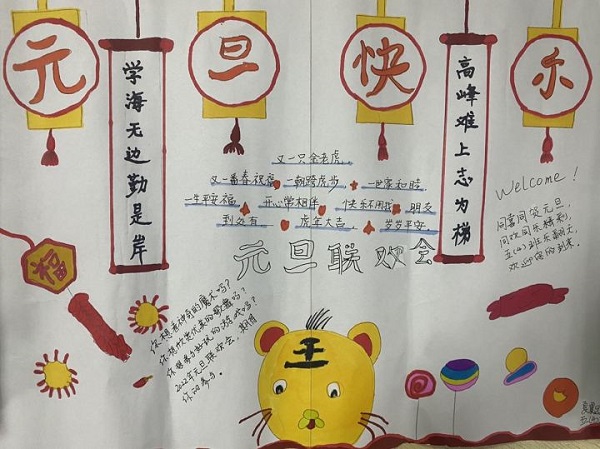 元旦快乐
学海无边勤是岸
高峰难上志为梯
又一只金老虎
又一番春祝福 一朝跨虎步 一世家和睦
一生平安福 开心常相伴 快乐不用找 朋友
到处有 虎年大吉 岁岁平安
元旦联欢会
Welcome!
同喜同贺元旦,
同欢同乐精彩,
五(4)班乐翻天,
欢迎您的到来。
福
你想看神奇的魔术吗?
你想欣赏优美的歌舞吗?
你想参与好玩的游戏吗?
2022年元旦联欢会,期待
你的参与。
王